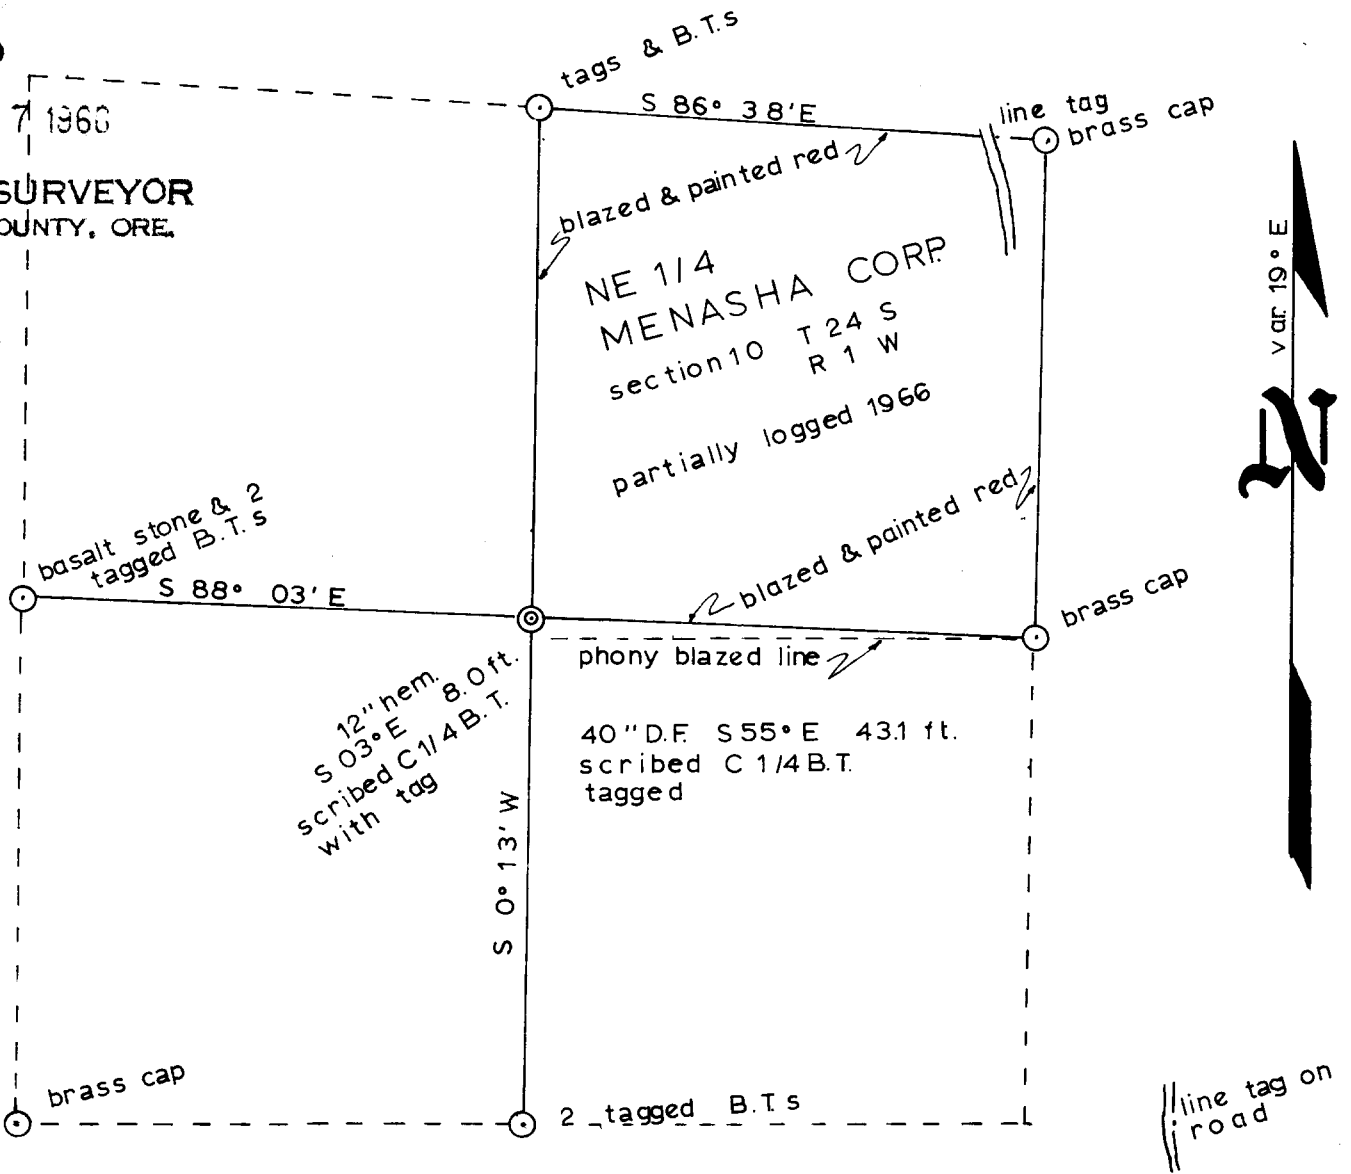 tags & B.T.s
S 86° 38' E
line tag
brass cap
7 1966
SURVEYOR
OUNTY, ORE.
blazed & painted red
NE 1/4
MENASHA CORP.
section 10 T 24 S
R 1 W
partially logged 1966
var. 19° E
N
basalt stone & 2
tagged B.T.s
S 88° 03' E
blazed & painted red
brass cap
phony blazed line
12" hem.
S 03° E 8.0 ft.
scribed C 1/4 B.T.
with tag
40" D.F. S 55° E 43.1 ft.
scribed C 1/4 B.T.
tagged
S 0° 13' W
brass cap
2 tagged B.T.s
line tag on
road